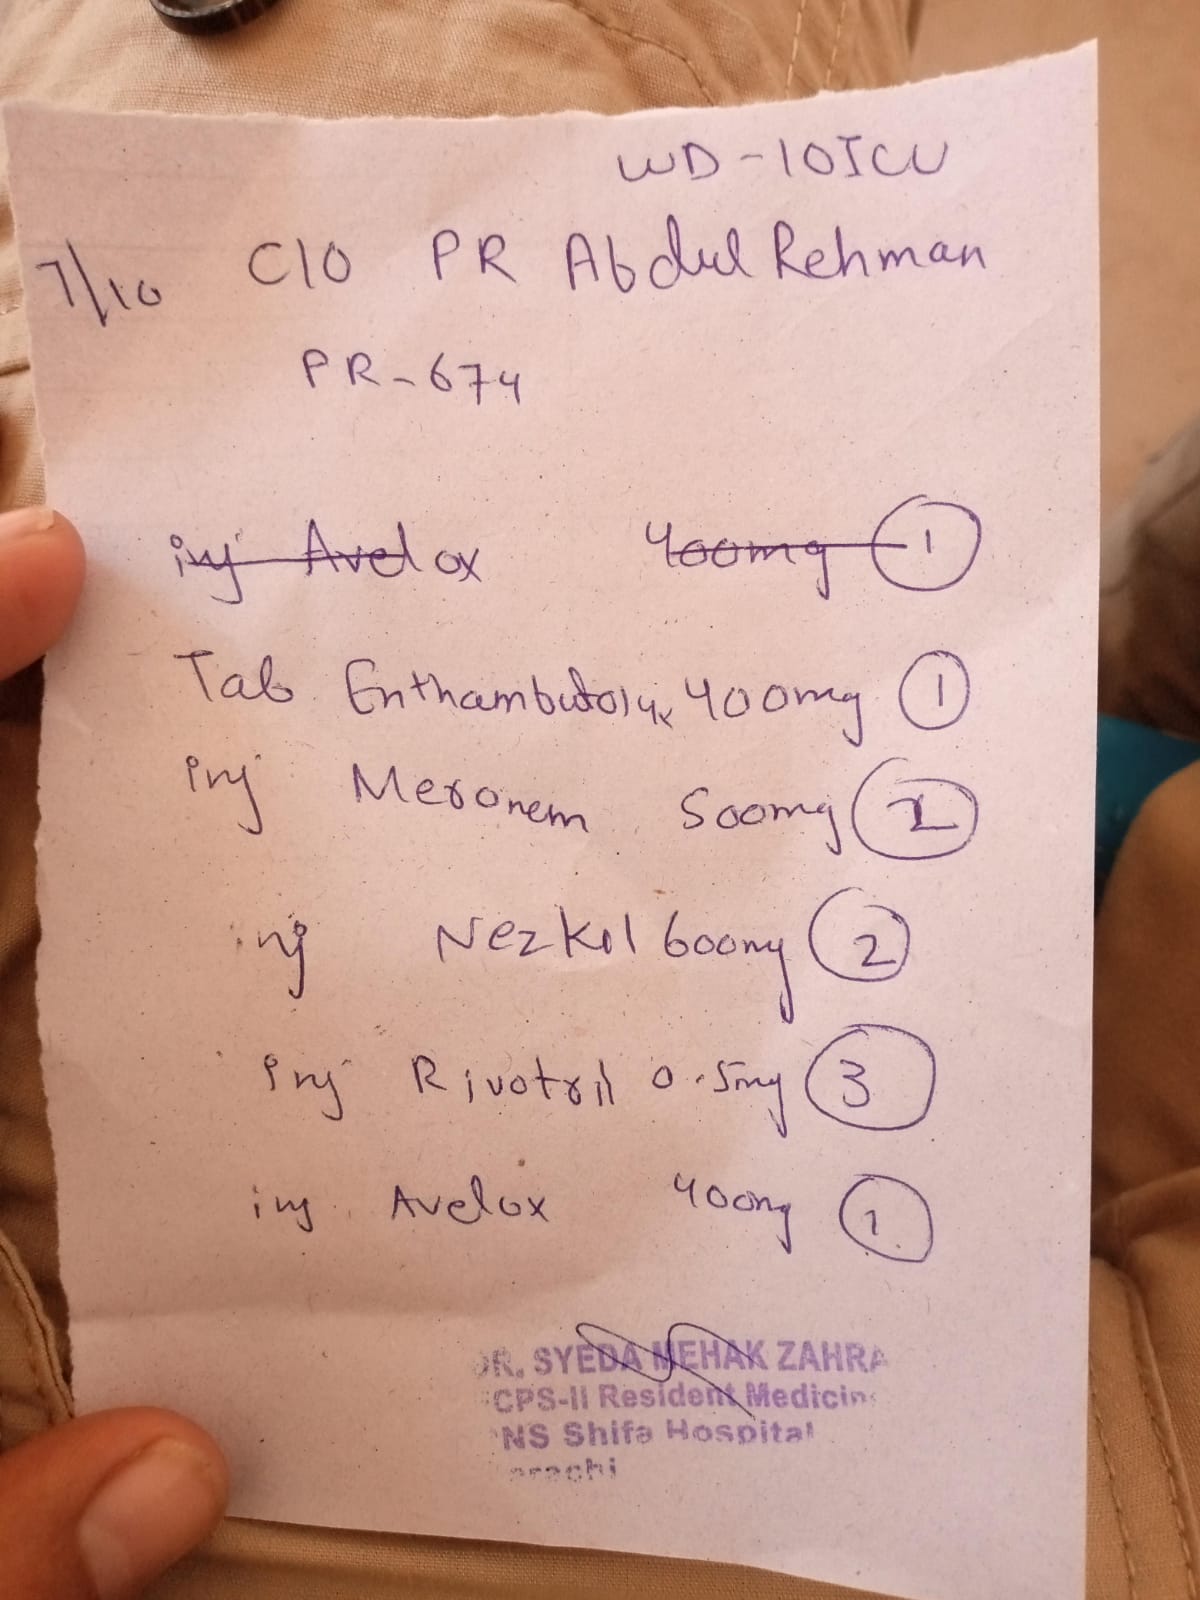 WD-10ICU
7/10 C/O PR Abdul Rehman
PR-674
inj Avelox 400mg 1
Tab Enthambutol 400mg 1
inj Meronem 500mg
inj Nezkil 600mg 2
inj Rivotril 0.5mg 3
inj Avelox 400mg 1
DR. SYEDA MEHAK ZAHRA
CPS-II Resident Medicin
NS Shifa Hospital
arachi